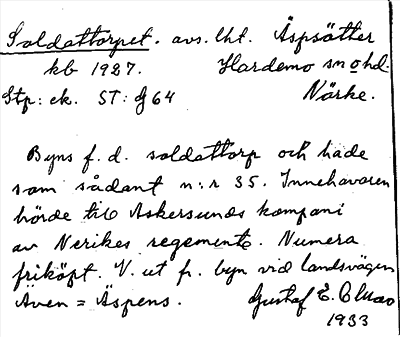 Soldattorpet. avs. lht. Äspsätter
kb 1927. Hardemo sn o hd.
Stp: ek. ST: g 64 Närke.
Byns f. d. soldattorp och hade
som sådant n:r 35. Innehavaren
hörde till Askersunds kompani
av Nerikes regemente. Numera
friköpt. V. ut fr. byn vid landsvägen
Även = Äspens. Gustaf E.
1933